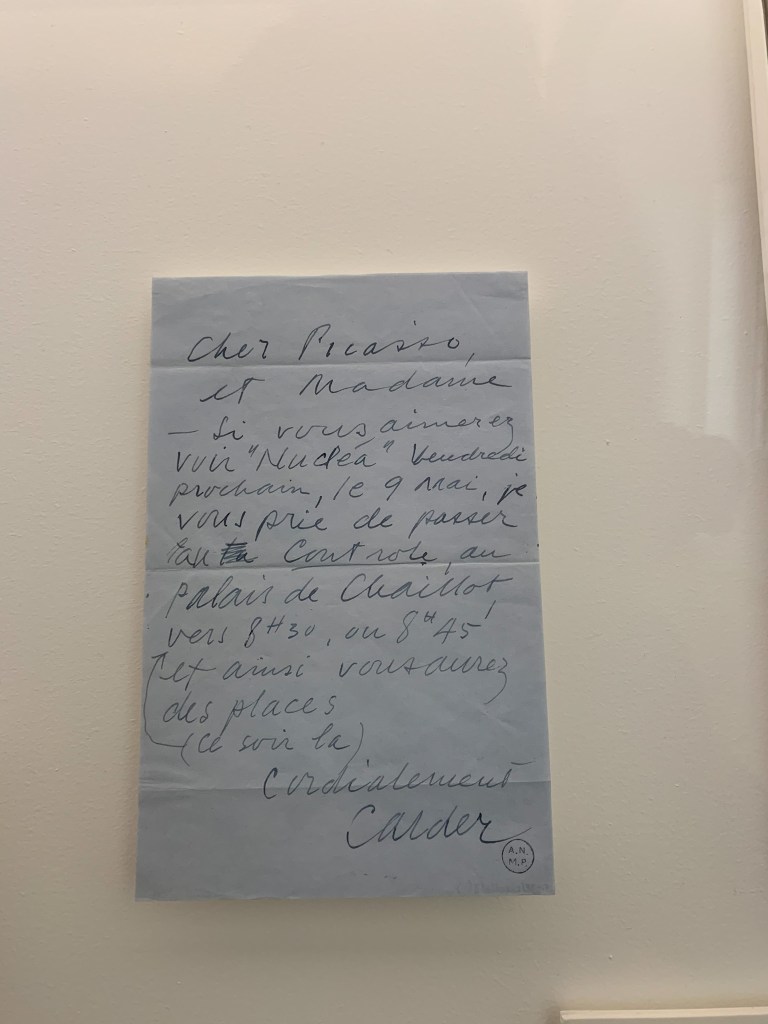 Cher Picasso,
et Madame
– Si vous aimerez
voir "Nucléa" Vendredi
prochain, le 9 Mai, je
vous prie de passer
au Controle, au
Palais de Chaillot,
vers 8H30, ou 8H45
et ainsi vous aurez
des places
(ce soir la)
Cordialement
Calder
A.N.
M.P.